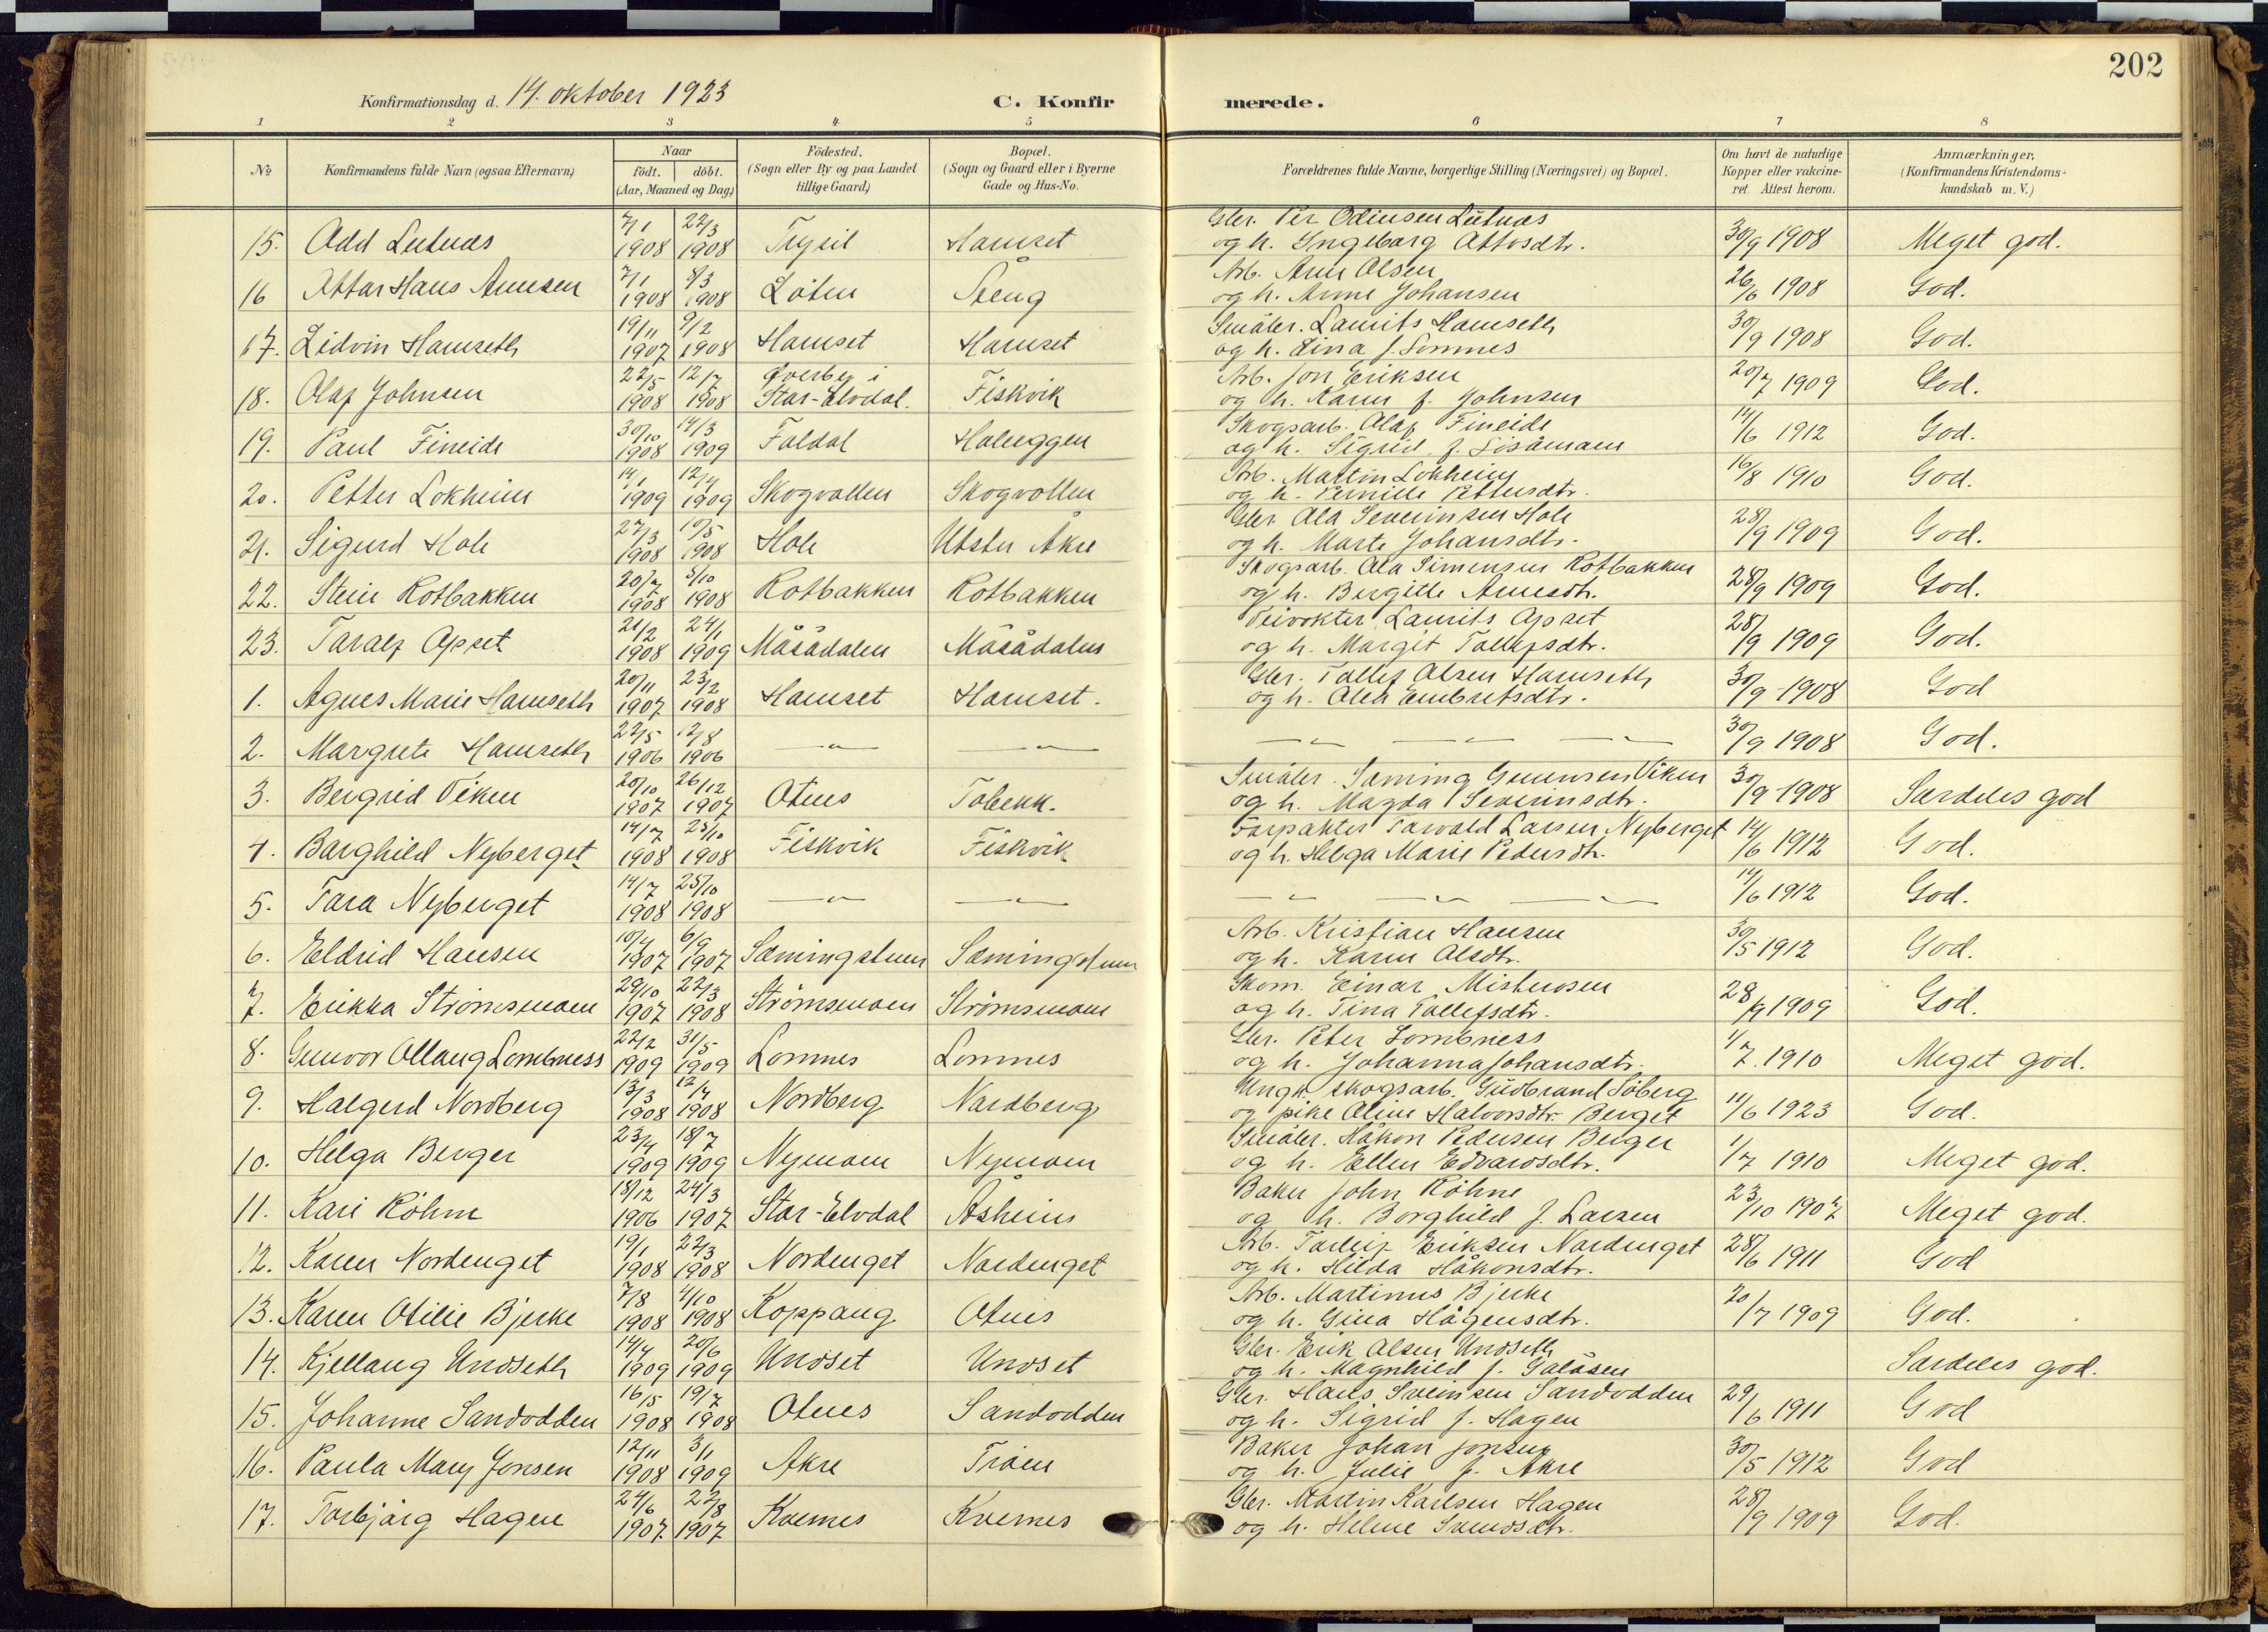 202
Konfirmationsdag d. 14. oktober 1923
C. Konfirmerede.
1 2 3 4 5 6 7 8
No
Konfirmandens fulde Navn (ogsaa Efternavn)
Naar
födt. döbt.
(Aar, Maaned og Dag)
Födested.
(Sogn eller By og paa Landet
tillige Gaard)
Bopæl.
(Sogn og Gaard eller i Byerne
Gade og Hus-No.
Forældrenes fulde Navne, borgerlige Stilling (Næringsvei) og Bopæl.
Om havt de naturlige
Kopper eller vakcine-
ret. Attest herom.
Anmærkninger,
(Konfirmandens Kristendoms-
kundskab m. V.)
15. Odd Lutnæs 7/1 1908 22/3 1908 Trysil Hamset Gbr. Per Odinsen Lutnæs
og h. Ingeborg Ottosdtr. 30/9 1908 Meget god.
16 Ottar Hans Arnesen 7/1 1908 8/3 1908 Löten Steng Arb. Arne Olsen
og h. Anne Johansen 26/6 1908 God.
17. Lidvin Hamseth 19/11 1907 9/2 1908 Hamset Hamset Småbr. Laurits Hamseth
og h. Lina f. Lomnes 30/9 1908 God.
18. Olaf Johnsen 22/5 1908 12/7 1908 Øverby i
Stor-Elvdal. Fiskvik Arb. Jon Eriksen
og h. Karen f. Johnsen 20/7 1909 God.
19. Paul Fineide 30/10 1908 14/3 1909 Foldal Holseggen Skogsarb. Olaf Fineide
og h. Sigrid f. 14/6 1912 God.
20. Petter Lokheim 14/1 1909 12/4 1909 Skogvollen Skogvollen Arb. Martin Lokheim
og h. Pernille Pettersdtr. 16/8 1910 God.
21. Sigurd Hole 27/3 1908 10/5 1908 Hole Utster Åkre Gbr. Ola Severinsen Hole
og h. Marte Johansdtr. 28/9 1909 God.
22. Stein Rotbakken 20/7 1908 5/10 1908 Rotbakken Rotbakken Skogsarb. Ola Simensen Rotbakken
og h. Bergitte Arnesdtr. 28/9 1909 God.
23. Toralf Opset 21/2 1908 24/1 1909 Måsådalen Måsådalen Veivokter Laurits Opset
og h. Margit Tollefsdtr. 28/9 1909 God.
1. Agnes Marie Hamseth 20/11 1907 23/2 1908 Hamset Hamset. Gbr. Tollef Olsen Hamseth
og h. Olea Embretsdtr. 30/9 1908 God
2. Margrete Hamseth 22/5 1906 12/8 1906 —"— —"— —"— —"— —"— 30/9 1908 God.
3. Bergrid Viken 20/10 1907 26/12 1907 Otnes Tobekk. Småbr. Sæming Viken
og h. Magda Severinsdtr. 30/9 1908 Særdeles god
4. Borghild Nyberget 14/7 1908 25/10 1908 Fiskvik Fiskvik Forpakter Torvald Larsen Nyberget
og h. Helga Marie Pedersdtr. 14/6 1912 God.
5. Tora Nyberget 14/7 1908 25/10 1908 —"— —"— —"— —"— —"— 14/6 1912 God.
6. Eldrid Hansen 10/4 1907 6/9 1907 Sæmingstuen Sæmingstuen Arb. Kristian Hansen
og h. Karen Olsdtr. 30/5 1912 God.
7. Erikka Strömsmoen 29/10 1907 22/3 1908 Strömsmoen Strömsmoen Skom. Einar Mistenosen
og h. Tina Tollefsdtr. 28/9 1909 God.
8. Gunvor Ollaug Lombness 22/2 1909 31/5 1909 Lomnes Lomnes Gbr. Peter Lombness
og h. Johanna Johansdtr. 1/7. 1910 Meget god.
9. Halgerd Nordberg 13/3 1908 12/4 1908 Nordberg Nordberg Ungk. skogsarb. Gudbrand Söberg
og pike Oline Halvorsdtr. Berget 11/6 1923 God.
10. Helga Berger 23/4 1909 18/7 1909 Nymoen Nymoen Småbr. Håkon Pedersen Berger
og h. Ellen Edvardsdtr. 1/7 1910 Meget god.
11. Kari Röhne 18/12 1906 24/3 1907 Stor-Elvdal Åsheim Baker John Röhne
og h. Borghild f. Larsen 23/10 1907 Meget god.
12. Karen Nordenget 19/1 1908 22/3 1908 Nordenget Nordenget Arb. Torleif Eriksen Nordenget
og h. Hilda Håkonsdtr. 28/6 1911 God
13. Karen Otilie Bjerke 7/8 1908 4/10 1908 Koppang Otnes Arb. Martinus Bjerke
og h. Gina Hågensdtr. 20/7 1909 God.
14. Kjellaug Undseth 14/4 1909 20/6 1909 Undset Undset Gbr. Erik Olsen Undseth
og h. Magnhild f. Galåsen Særdeles god.
15. Johanne Sandodden 16/5 1908 19/7 1908 Otnes Sandodden Gbr. Hans Sveinsen Sandodden
og h. Sigrid f. Hagen 29/6 1911 God
16. Paula Mary Jonsen 12/11 1908 3/11 1909 Åkre Troen Baker Johan Jonsen
og h. Julie f. Åkre 30/5 1912 God
17. Torbjörg Hagen 24/6 1907 22/8 1907 Kvernes Kvernes Gbr. Martin Karlsen Hagen
og h. Helene Svendsdtr. 28/9 1909 God.